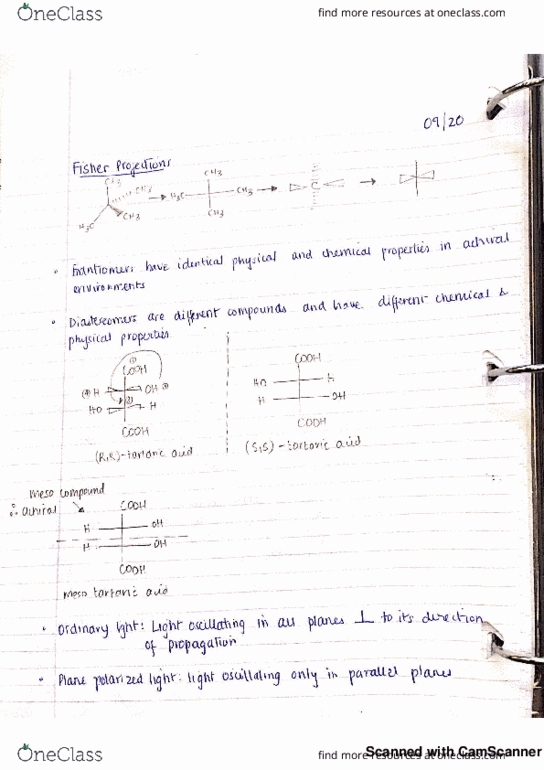 OneClass
find more resources at oneclass.com
09/20
Fisher Projections
CH3
CH3
CH3
H3C
CH3
H3C
CH3
CH3
C
• Enantiomers have identical physical and chemical properties in achiral
environments
• Diastereomers are different compounds and have different chemical &
physical properties
COOH
H
OH
HO
H
COOH
(R,R)-tartaric acid
COOH
HO
H
H
OH
COOH
(S,S)-tartaric acid
Meso compound
∴ achiral
COOH
H
OH
H
OH
COOH
meso tartaric acid
• Ordinary light: Light oscillating in all planes ⊥ to its direction
of propagation
• Plane polarized light: light oscillating only in parallel planes
OneClass
find more resources at oneclass.com
Scanned with CamScanner